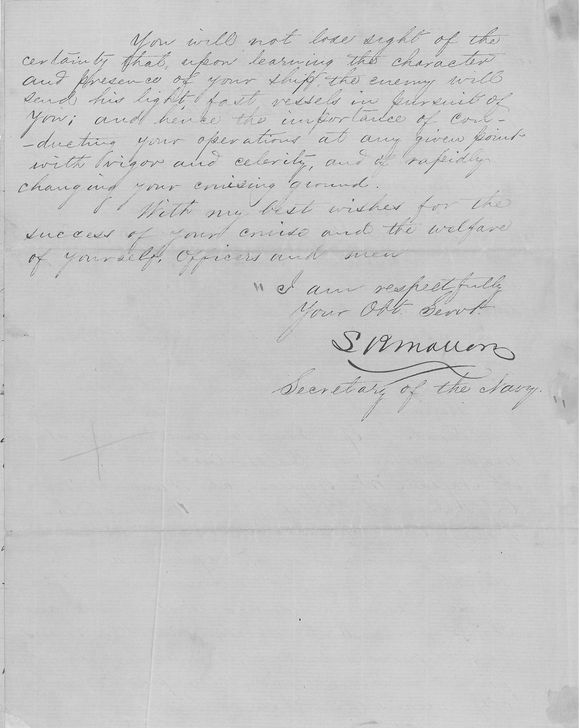 You will not lose sight of the
certainty that, upon learning the character
and presence of your ship, the enemy will
send his light, fast vessels in pursuit of
you; and hence the importance of con-
-ducting your operations at any given point
with vigor and celerity, and of rapidly
changing your cruising ground.
With my best wishes for the
success of your cruise and the welfare
of yourself, Officers and men
" I am respectfully
Your Obt. Servt.
S R Mallory
Secretary of the Navy.